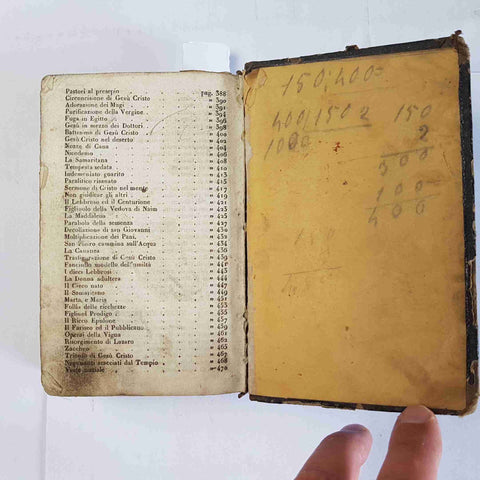 Pastori al presepio pag. 388
Circoncisione di Gesù Cristo » 390
Adorazione dei Magi » 391
Purificazione della Vergine » 394
Fuga in Egitto » 396
Gesù in mezzo dei Dottori » 398
Battesimo di Gesù Cristo » 400
Gesù Cristo nel deserto » 402
Nozze di Cana » 404
Nicodemo » 406
La Samaritana » 408
Tempesta sedata » 410
Indemoniato guarito » 413
Paralitico risanato » 415
Sermone di Cristo nel monte » 417
Non giudicar gli altri » 419
Il Lebbroso ed il Centurione » 421
Figliuolo della Vedova di Naim » 423
La Maddalena » 425
Parabola della semenza » 427
Decollazione di san Giovanni » 429
Moltiplicazione dei Pani » 431
San Pietro cammina sull'Acqua » 434
La Cananea » 436
Trasfigurazione di Gesù Cristo » 439
Fanciullo modello dell'umiltà » 441
I dieci Lebbrosi » 443
La Donna adultera » 444
Il Cieco nato » 447
Il Samaritano » 449
Marta, e Maria » 451
Follia delle ricchezze » 453
Figliuol Prodigo » 455
Il Ricco Epulone » 457
Il Fariseo ed il Pubblicano » 459
Operai della Vigna » 461
Risorgimento di Lazaro » 462
Zaccheo » 465
Trionfo di Gesù Cristo » 467
Negozianti scacciati dal Tempio » 468
Veste nuziale » 470
150,400=
400,150 2
1000
150
2
300
100
400